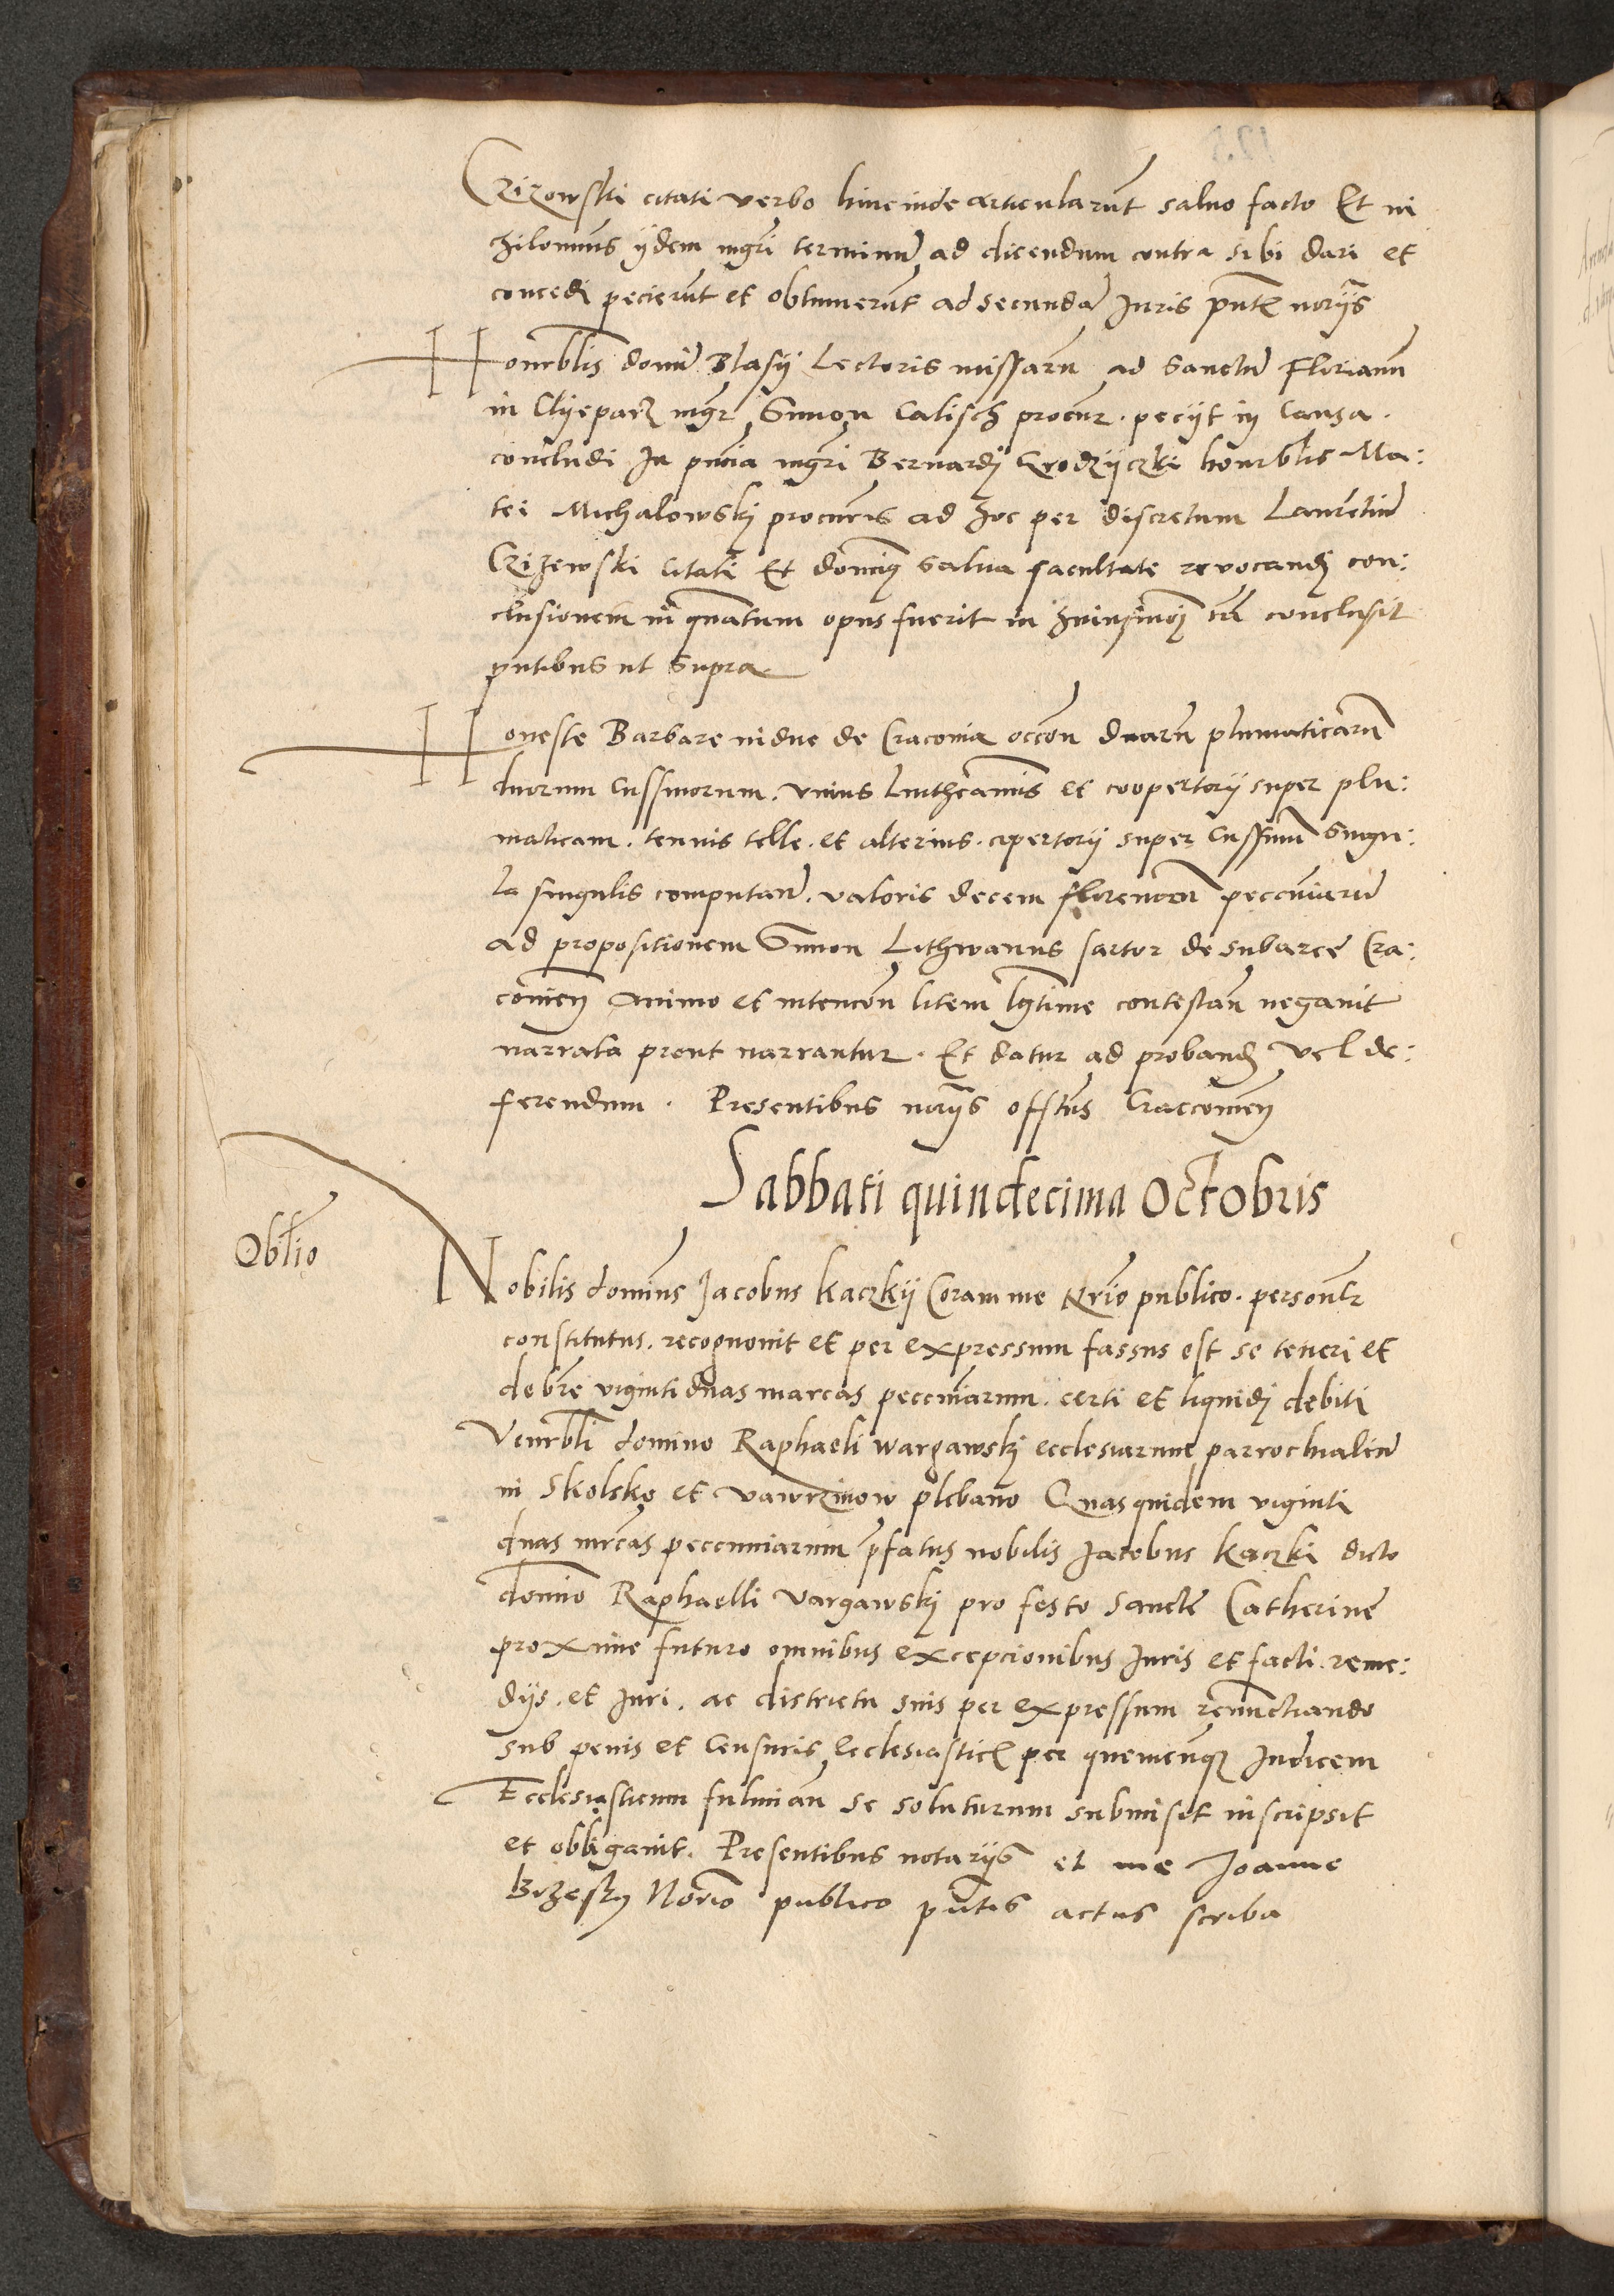 Czizowski citati verbo hincinde articularunt salvo facto Et ni
hilominus ijdem mgri terminum ad dicendum contra sibi dari et
concedi pecierunt et obtinuerunt ad secundam Juris pntibus norijs
Honorbilis domini Blasij Lectoris missarum ad Sanctum Florianum
in Clyeparz mgr Simon Calisch procur. pecijt in Causa.
concludi In pncia mgri Bernardi Grodzijczki honorblis Ma:
tei Michalowski procuris ad hoc per discretum Laurentium
Czizewski Citati Et dominus salva facultate revocandi con:
clusionem in quantum opus fuerit in huiusmodi ca conclusit
pntibus ut supra
Honeste Barbare vidue de Cracovia occon duarum plumaticarum
duorum Cussinorum. vnius lintheaminis et coopertorij super plu:
maticam. tenuis telle. et alterius. copertorij super Cussinum Singu:
la singulis computan. valoris decem florenorum peccuniarum
ad propositionem Simon Lithwanus sartor de subarce Cra:
covien animo et intencon litem lgtime contestan negavit
narrata prout narrantur. Et datur ad proband vel de:
ferendum. Presentibus norijs offtus Craccovien
Sabbati quindecima Octobris
Oblio
Nobilis dominus Jacobus Kaczkij Coram me Nrio publico. personlr
constitutus. recognovit et per expressum fassus est se teneri et
debre viginti duas marcas peccuniarum. certi et liquidi debiti
Venrbli domino Raphaeli Wargawski ecclesiarum parrochialium
in Skolsko et Vawrzinow plebano Quasquidem viginti
duas mrcas peccuniarum pfatus nobilis Jacobus Kaczki dicto
domino Raphaelli Vargawski pro festo Sancte Catherine
proxime futuro omnibus excepcionibus Juris et facti. reme:
dijs. et Juri. ac districtu suis per expressum renunctiando
sub penis et Censuris Ecclesiasticis per quemcunque Judicem
Ecclesiasticum fulminan se soluturum submisit inscripsit
et obligavit. Presentibus notarijs et me Joanne
Brzeski Norio publico pntis actus scriba